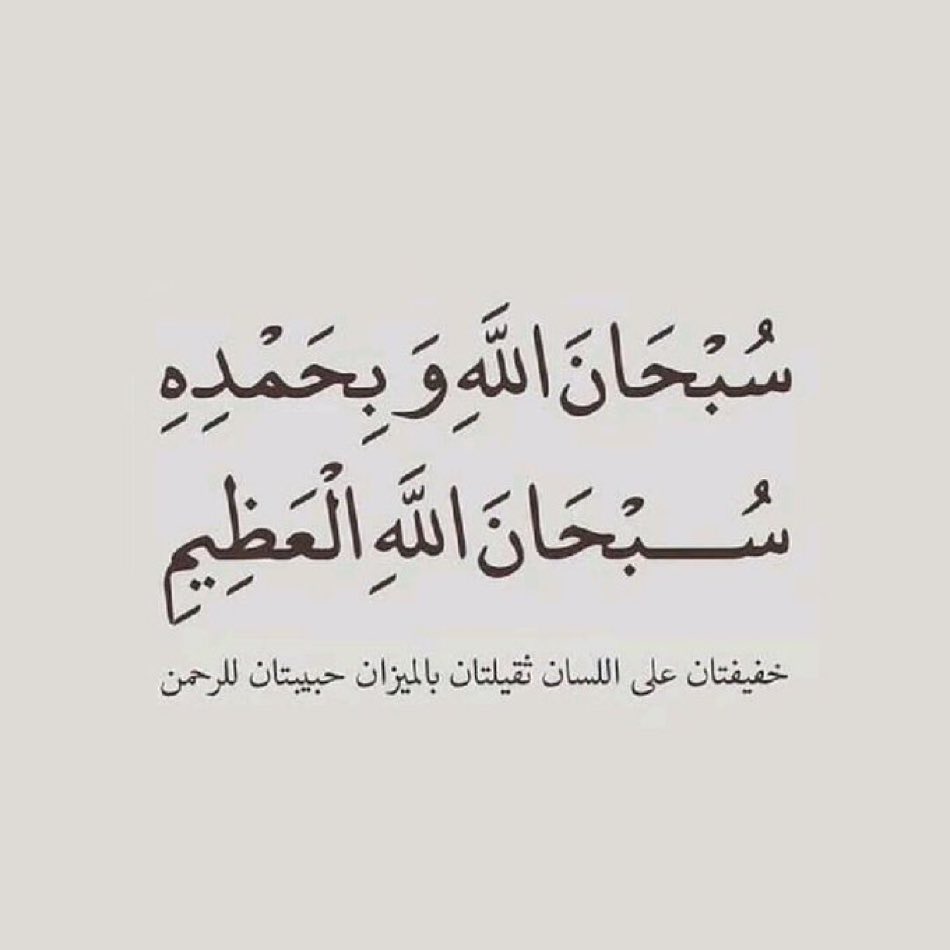 سُبْحَانَ اللَّهِ وَ بِحَمْدِهِ
سُبْحَانَ اللَّهِ الْعَظِيمِ
خفيفتان على اللسان ثقيلتان بالميزان حبيبتان للرحمن